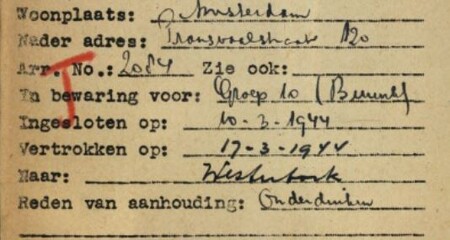 Woonplaats: Amsterdam
Nader adres: Transvaalstraat 120
Arr. No.: 2084 Zie ook:
In bewaring voor: Groep 10
Ingesloten op: 10-3-1944
Vertrokken op: 17-3-1944
Naar: Westerbork
Reden van aanhouding: Onderduiken
T